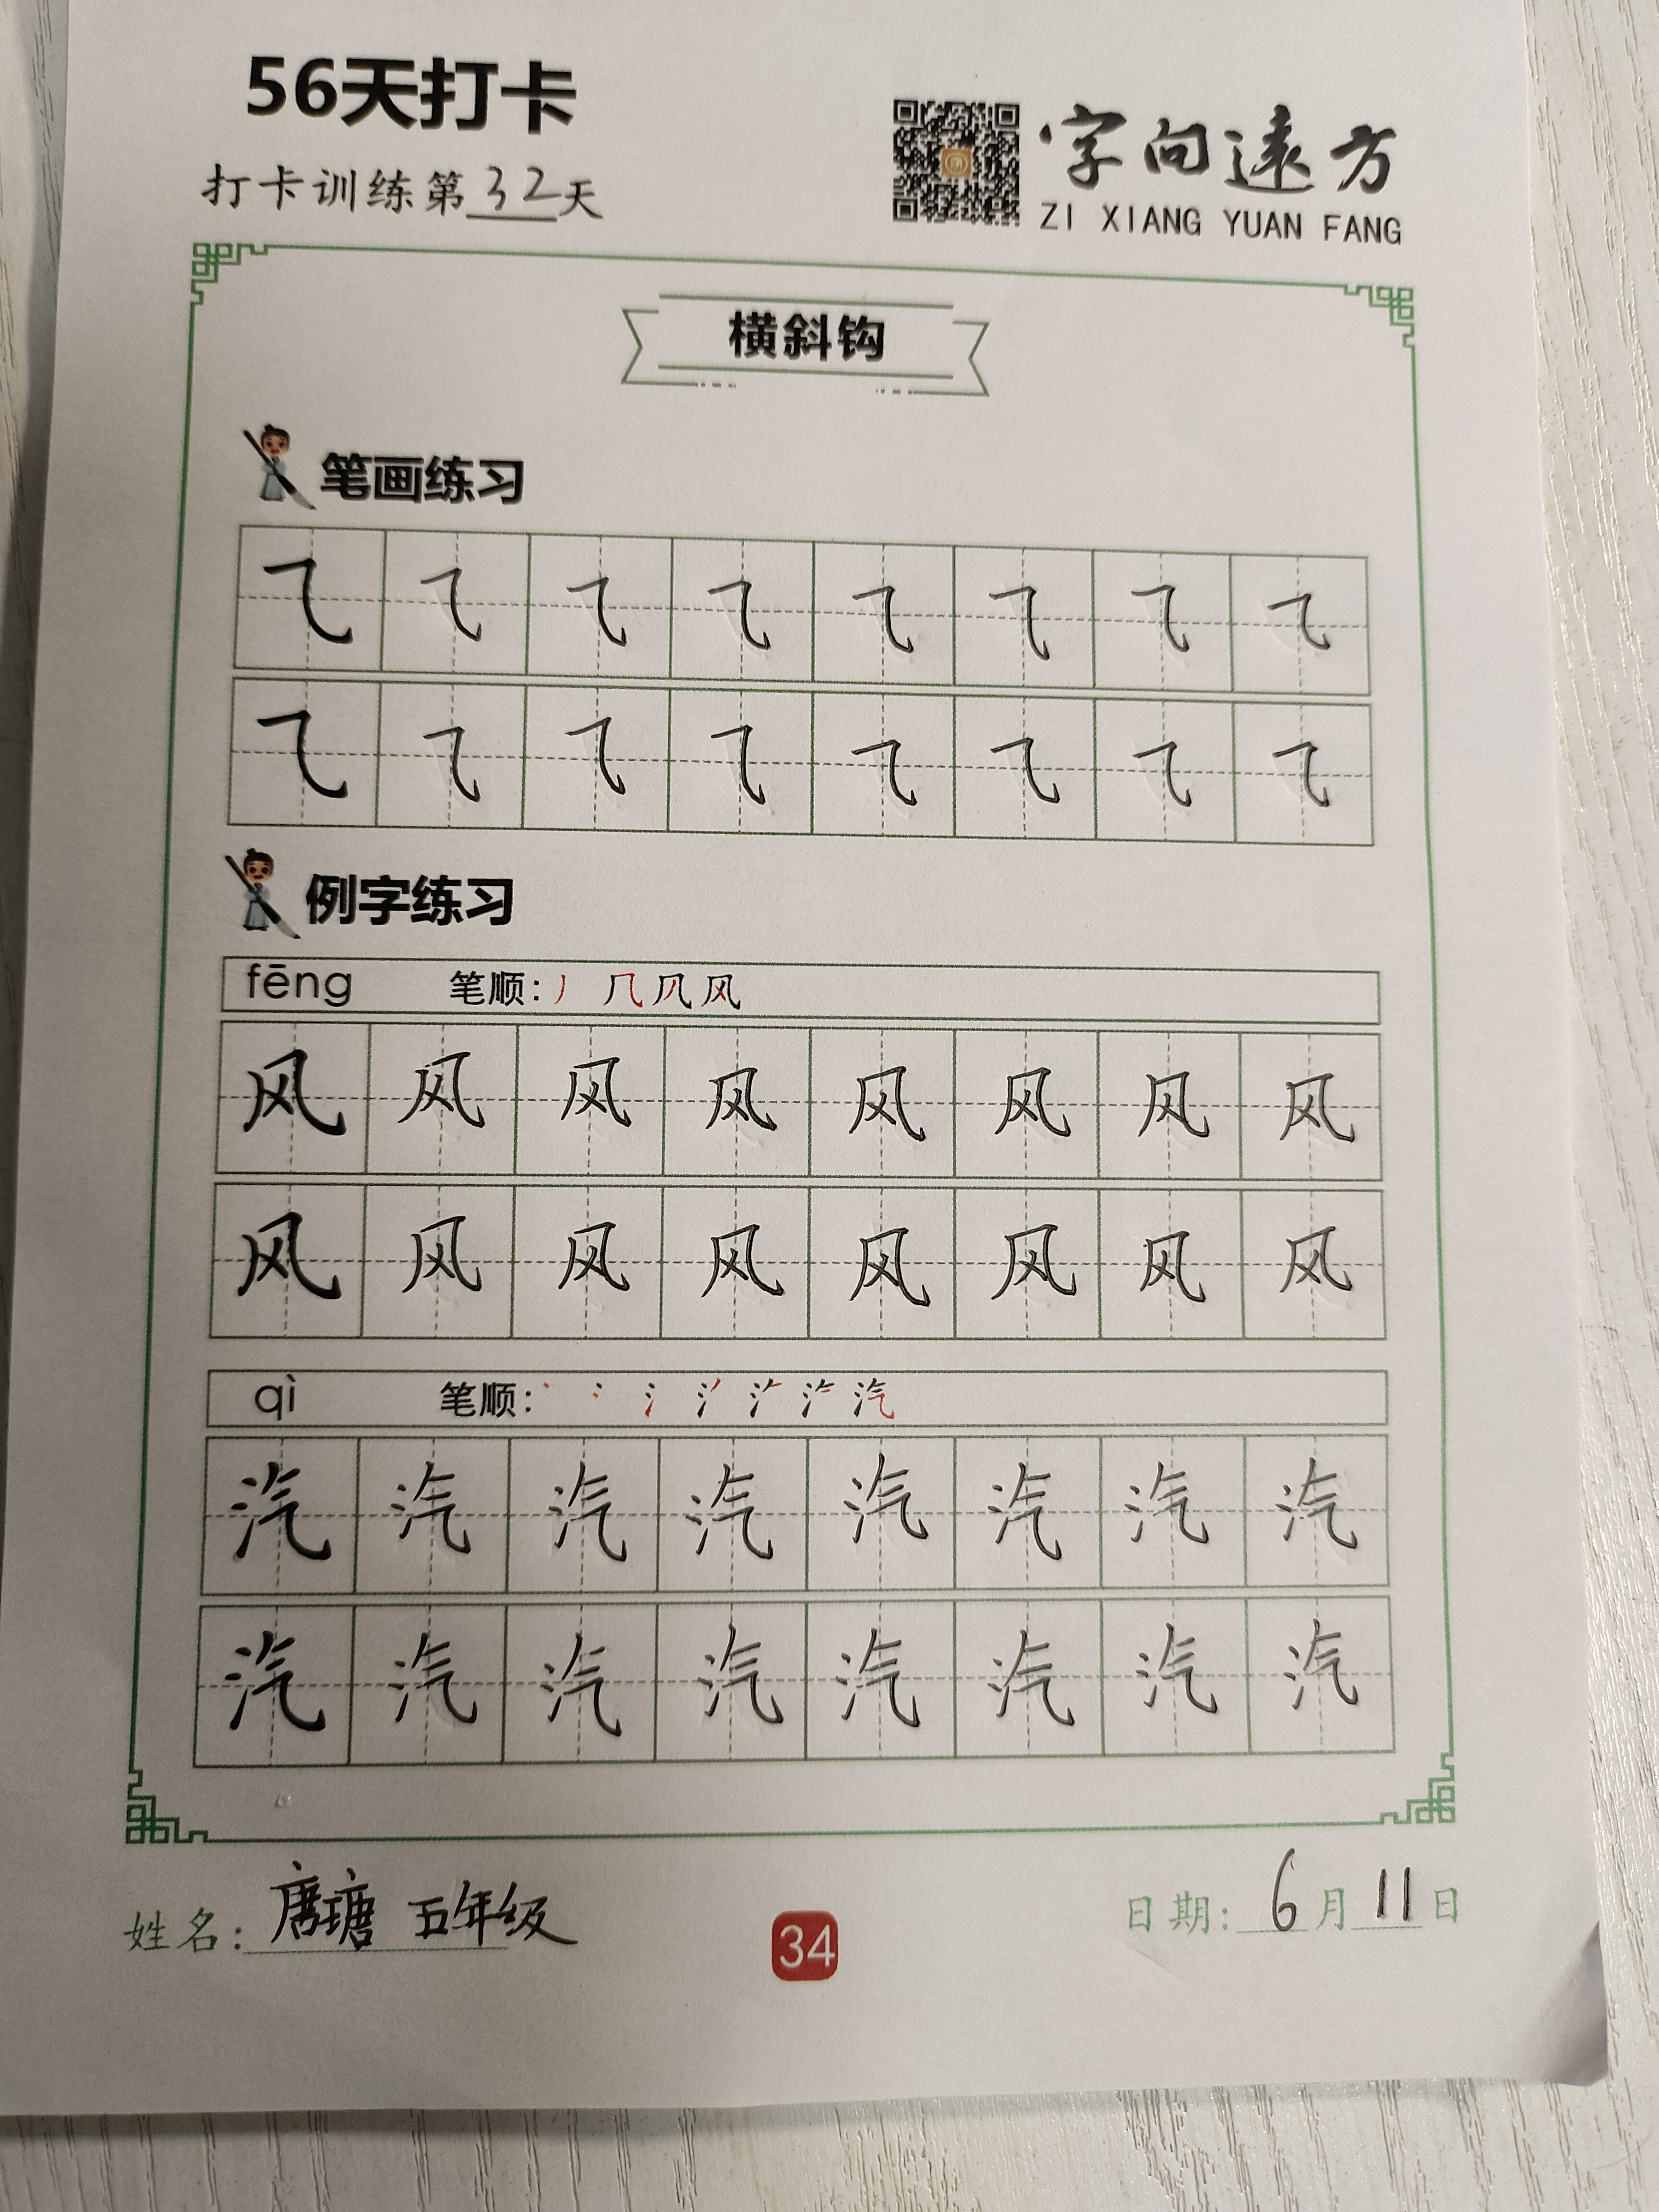 56天打卡
打卡训练第32天
字向遠方
ZI XIANG YUAN FANG
横斜钩
笔画练习
⺄ ⺄ ⺄ ⺄ ⺄ ⺄ ⺄ ⺄
⺄ ⺄ ⺄ ⺄ ⺄ ⺄ ⺄ ⺄
例字练习
fēng 笔顺: 丿 几 凨 风
风 风 风 风 风 风 风 风
风 风 风 风 风 风 风 风
qì 笔顺: 汽
汽 汽 汽 汽 汽 汽 汽 汽
汽 汽 汽 汽 汽 汽 汽 汽
姓名: 唐瑭 五年级
34
日期: 6月11日